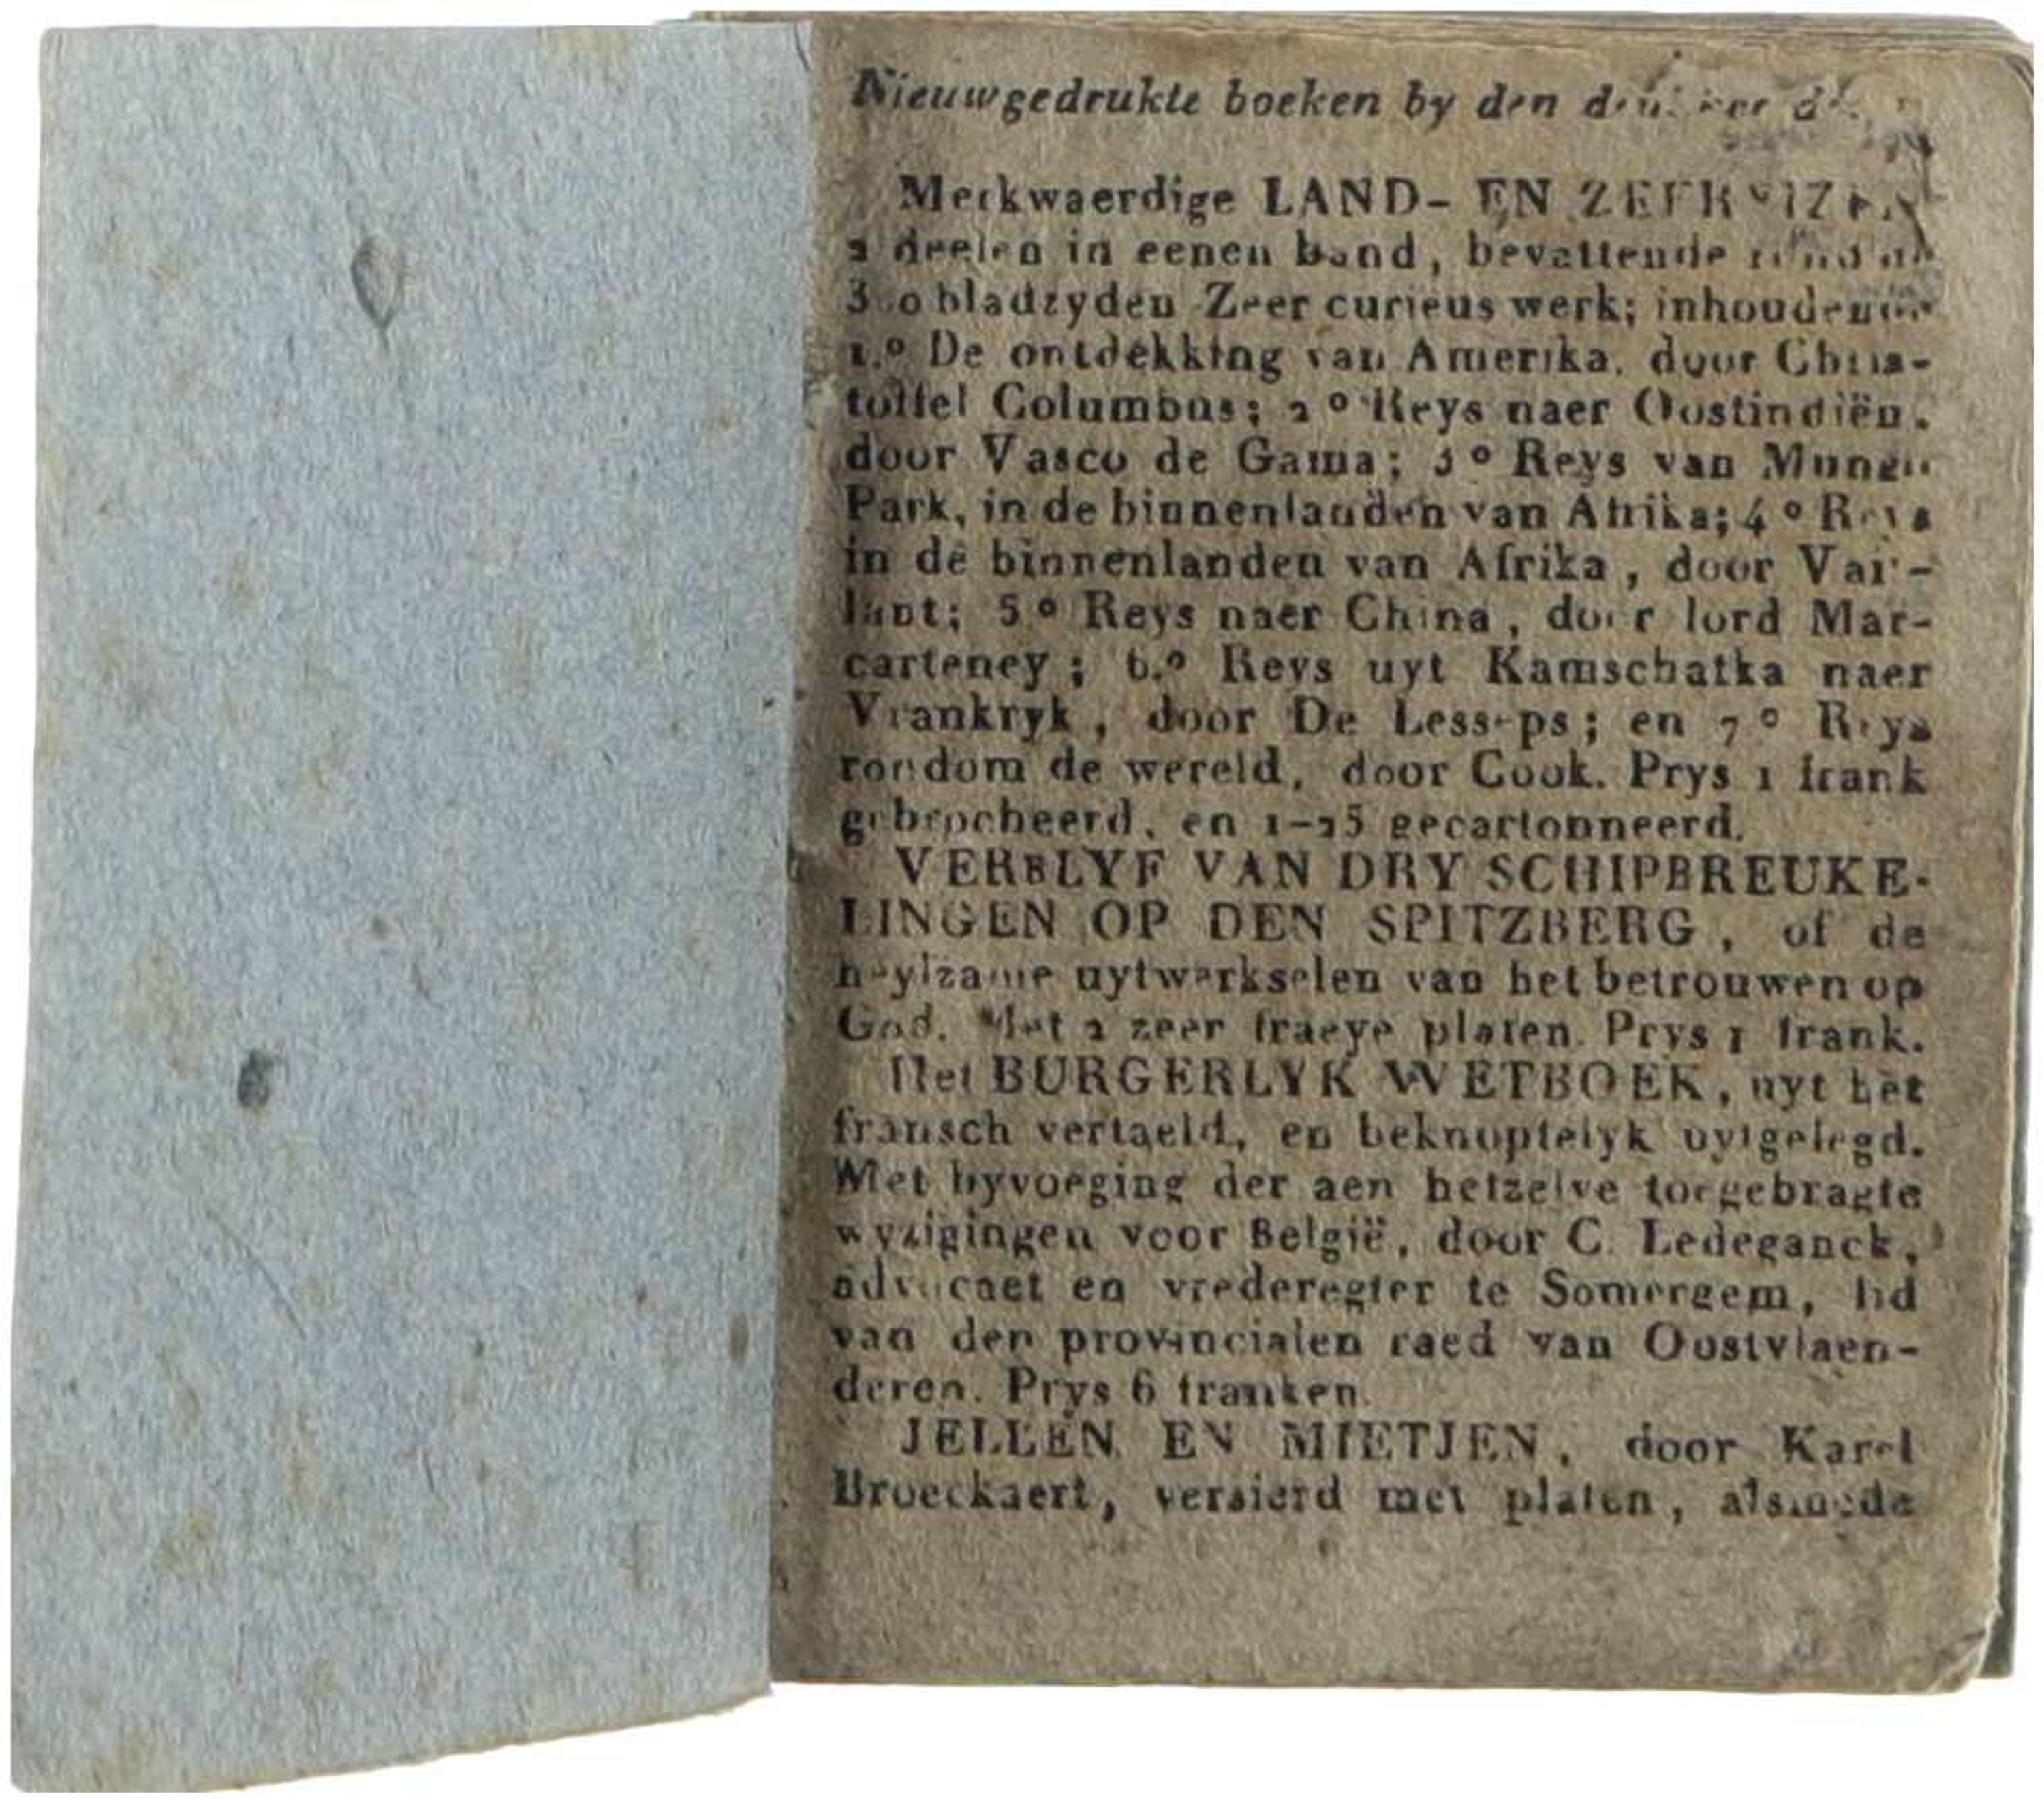 Nieuwgedrukte boeken by den
Merkwaerdige LAND- EN
2 deelen in eenen band, bevattende
bladzyden Zeer curieus werk; inhoudende
1.º De ontdekking van Amerika, door Chris-
toffel Columbus; 2º Reys naer Oostindiën,
door Vasco de Gama; 3º Reys van Mungo
Park, in de binnenlanden van Afrika; 4º Reys
in de binnenlanden van Afrika, door Vail-
lant; 5º Reys naer China, door lord Mar-
carteney; 6.º Reys uyt Kamschatka naer
Vrankryk, door De Lesseps; en 7º Reys
rondom de wereld, door Cook. Prys 1 frank
gebrocheerd, en 1-25 gecartonneerd.
VERBLYF VAN DRY SCHIPBREUKE-
LINGEN OP DEN SPITZBERG, of de
heylzame uytwerkselen van het betrouwen op
God. Met 2 zeer fraeye platen. Prys 1 frank.
Het BURGERLYK WETBOEK, uyt het
fransch vertaeld, en beknoptelyk uytgelegd.
Met byvoeging der aen hetzelve toegebragte
wyzigingen voor België, door C. Ledeganck,
advocaet en vrederegter te Somergem, lid
van den provincialen raed van Oostvlaen-
deren. Prys 6 franken.
JELLEN EN MIETJEN, door Karel
Broeckaert, versierd met platen, alsmede